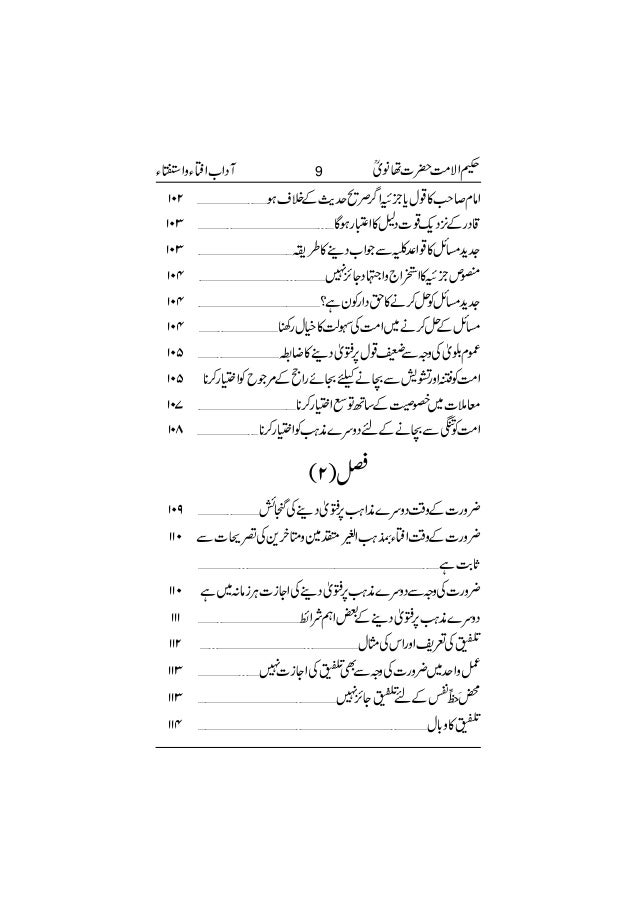 حکیم الامت حضرت تھانویؒ 9 آداب افتاء واستفتاء
امام صاحب کا قول یا جزئیہ اگر صریح حدیث کے خلاف ہو ۱۰۲
قادر کے نزدیک قوت دلیل کا اعتبار ہوگا ۱۰۳
جدید مسائل کا قواعد کلیہ سے جواب دینے کا طریقہ ۱۰۳
منصوص جزئیہ کا استخراج واجتہاد جائز نہیں ۱۰۴
جدید مسائل کو حل کرنے کا حق دار کون ہے؟ ۱۰۴
مسائل کے حل کرنے میں امت کی سہولت کا خیال رکھنا ۱۰۴
عموم بلویٰ کی وجہ سے ضعیف قول پر فتویٰ دینے کا ضابطہ ۱۰۵
امت کو فتنہ اور تشویش سے بچانے کیلئے بجائے راجح کے مرجوح کو اختیار کرنا ۱۰۵
معاملات میں خصوصیت کے ساتھ توسع اختیار کرنا ۱۰۷
امت کو تنگی سے بچانے کے لئے دوسرے مذہب کو اختیار کرنا ۱۰۸
فصل (۲)
ضرورت کے وقت دوسرے مذاہب پر فتویٰ دینے کی گنجائش ۱۰۹
ضرورت کے وقت افتاء بمذہب الغیر متقدمین ومتاخرین کی تصریحات سے ۱۱۰
ثابت ہے
ضرورت کی وجہ سے دوسرے مذہب پر فتویٰ دینے کی اجازت ہر زمانہ میں ہے ۱۱۰
دوسرے مذہب پر فتویٰ دینے کے بعض اہم شرائط ۱۱۱
تلفیق کی تعریف اور اس کی مثال ۱۱۲
عمل واحد میں ضرورت کی وجہ سے بھی تلفیق کی اجازت نہیں ۱۱۳
محض حَظِّ نفس کے لئے تلفیق جائز نہیں ۱۱۳
تلفیق کا وبال ۱۱۴